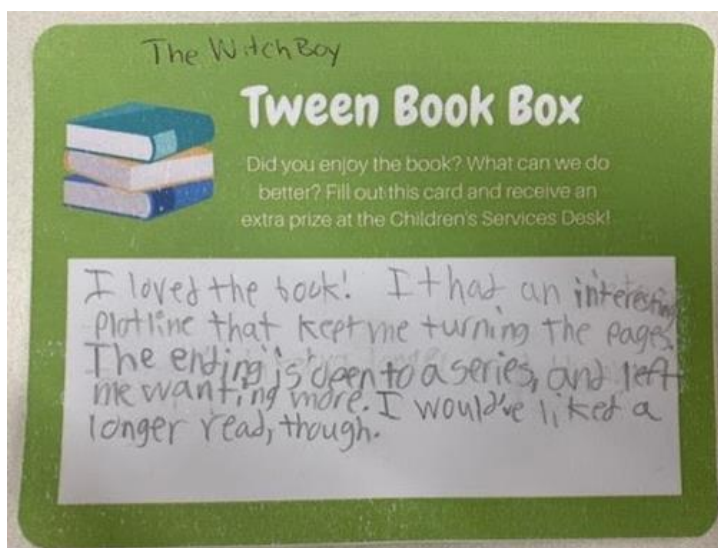 The Witch Boy
Tween Book Box
Did you enjoy the book? What can we do
better? Fill out this card and receive an
extra prize at the Children's Services Desk!
I loved the book! It had an interesting
plotline that kept me turning the pages.
The ending is open to a series, and left
me wanting more. I would've liked a
longer read, though.